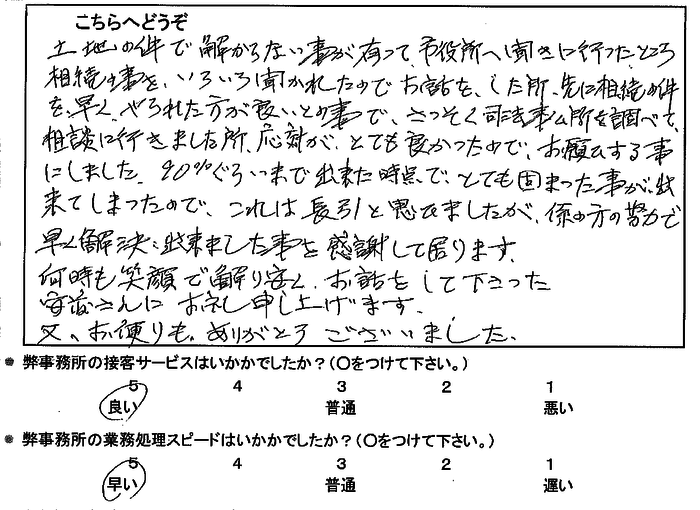 こちらへどうぞ
土地の件で解からない事が有って、市役所へ聞きに行ったところ
相続の事を、いろいろ聞かれたのでお話を、した所、先に相続の件
を、早く、やられた方が良いとの事で、さっそく司法事ム所を調べて、
相談に行きました所、応対が、とても良かったので、お願いする事
にしました。90%ぐらいまで出来た時点で、とても困まった事が、出
来てしまったので、これは長引くと思いましたが、係の方の努力で
早く解決出来ました事を感謝して居ります。
何時も笑顔で解り安く、お話をして下さった
さんにお礼申し上げます。
又、お便りも、ありがとうございました。
● 弊事務所の接客サービスはいかかでしたか？(○をつけて下さい。)
5 4 3 2 1
良い 普通 悪い
● 弊事務所の業務処理スピードはいかかでしたか？(○をつけて下さい。)
5 4 3 2 1
早い 普通 遅い